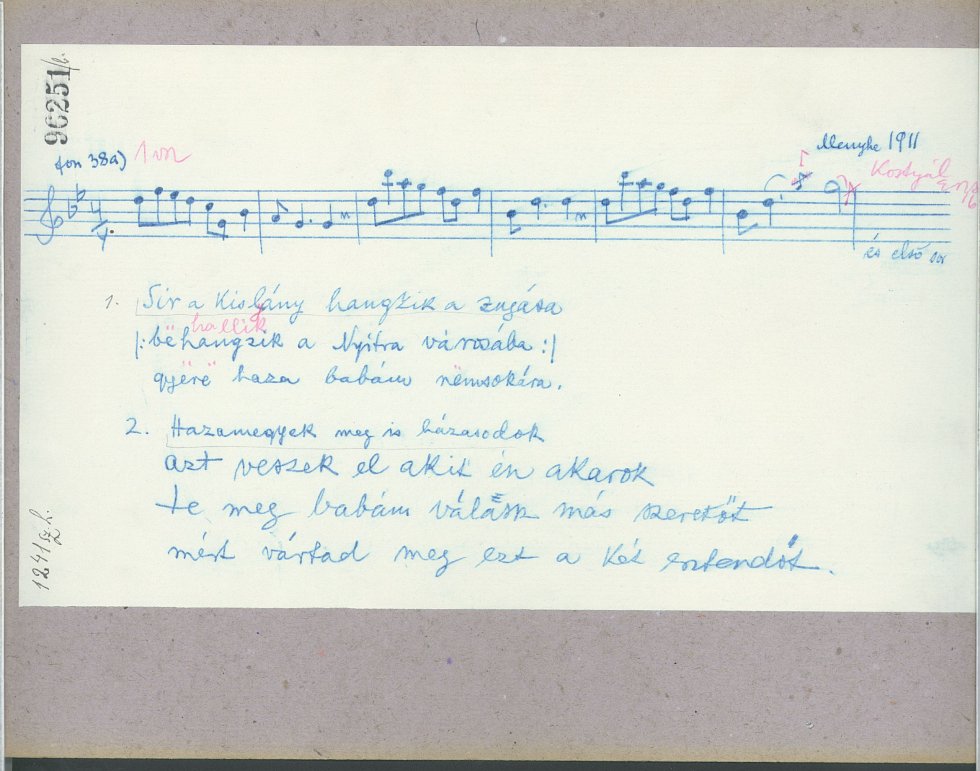 96251/b.
fon 38a)
Menyhe 1911
Kostyál
és első sor
1. Sir a Kislány hangzik a zugása
hallik
|: bëhangzik a Nyitra városába :|
gyërë haza babám nëmsokára.
2. Hazamegyek meg is házasodok
azt veszek el akit én akarok
te meg babám válassz más szeretőt
mért vártad meg ezt a Két esztendőt.
1241 sz. h.